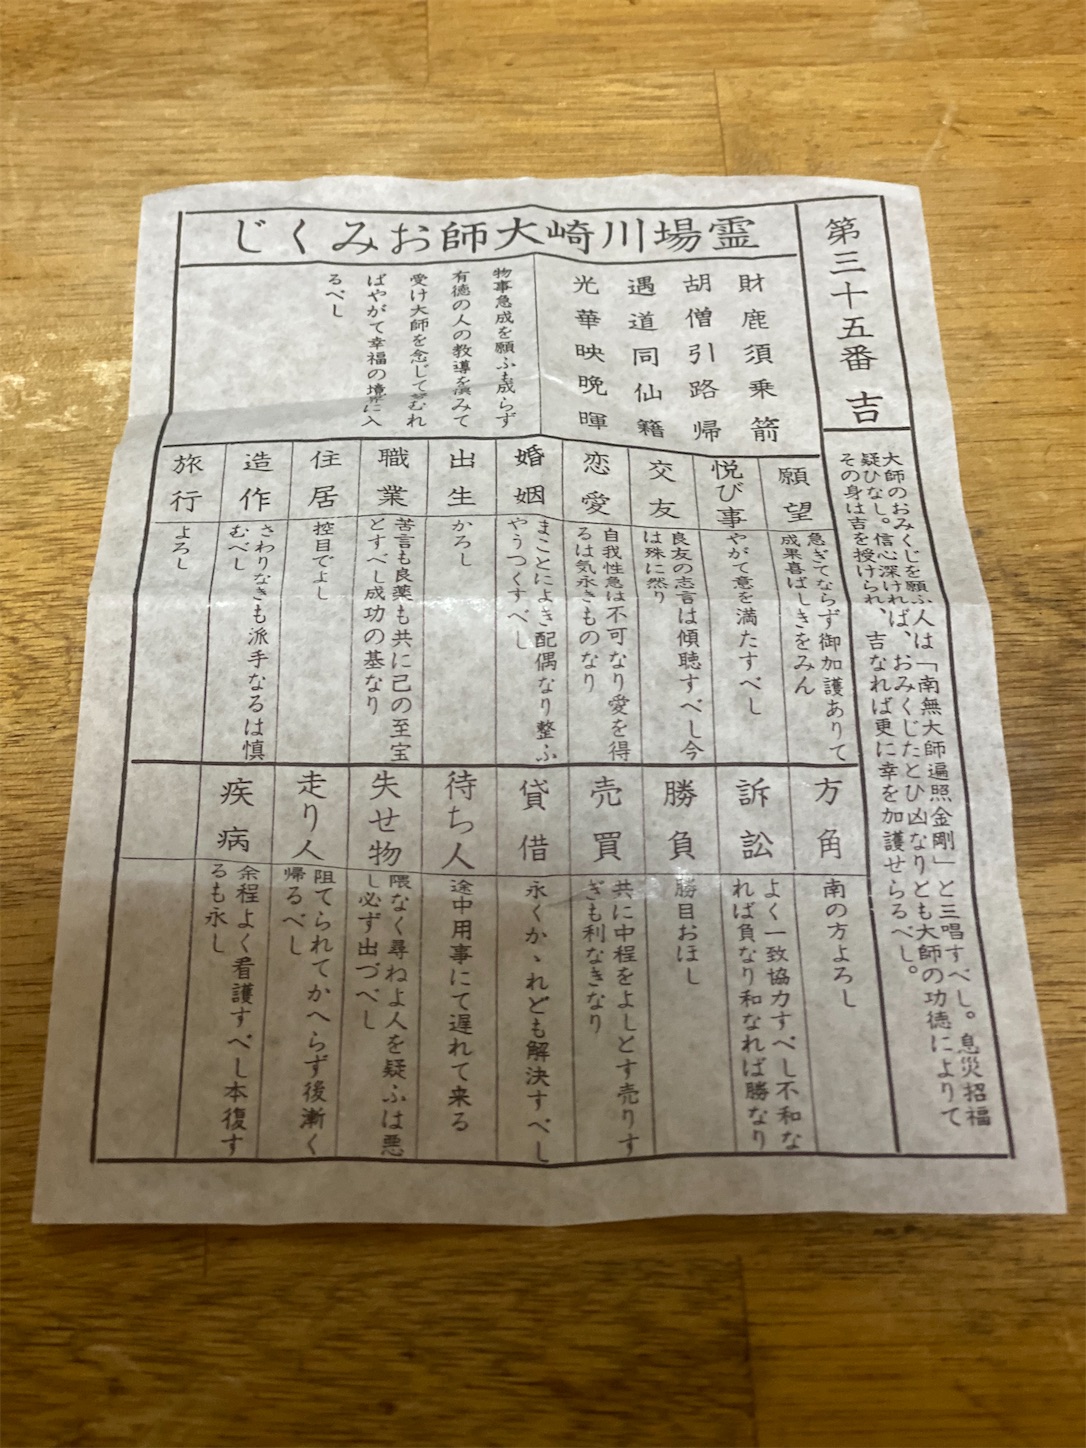 第三十五番 吉
大師のおみくじを願ふ人は「南無大師遍照金剛」と三唱すべし。息災招福
疑ひなし。信心深ければ、おみくじたとひ凶なりとも大師の功徳によりて
その身は吉を授けられ、吉なれば更に幸を加護せらるべし。
霊場川崎大師おみくじ
財鹿須乗箭
胡僧引路帰
遇道同仙籍
光華映晩暉
物事急成を願ふも成らず
有徳の人の教導を頂みて
受け大師を念じてさむれ
ばやがて幸福の境界に入
るべし
願望
急ぎてならず御加護ありて
成果喜ばしきをみん
悦び事
やがて意を満たすべし
交友
良友の志言は傾聴すべし今
は殊に然り
恋愛
自我性急は不可なり愛を得
るは気永きものなり
婚姻
まことによき配偶なり整ふ
やうつくすべし
出生
かろし
職業
苦言も良薬も共に己の至宝
とすべし成功の基なり
住居
控目でよし
造作
さわりなきも派手なるは慎
むべし
旅行
よろし
方角
南の方よろし
訴訟
よく一致協力すべし不和な
れば負なり和なれば勝なり
勝負
勝目おほし
売買
共に中程をよしとす売りす
ぎも利なきなり
貸借
永くかゝれども解決すべし
待ち人
途中用事にて遅れて来る
失せ物
隈なく尋ねよ人を疑ふは悪
し必ず出づべし
走り人
阻てられてかへらず後漸く
帰るべし
疾病
余程よく看護すべし本復す
るも永し